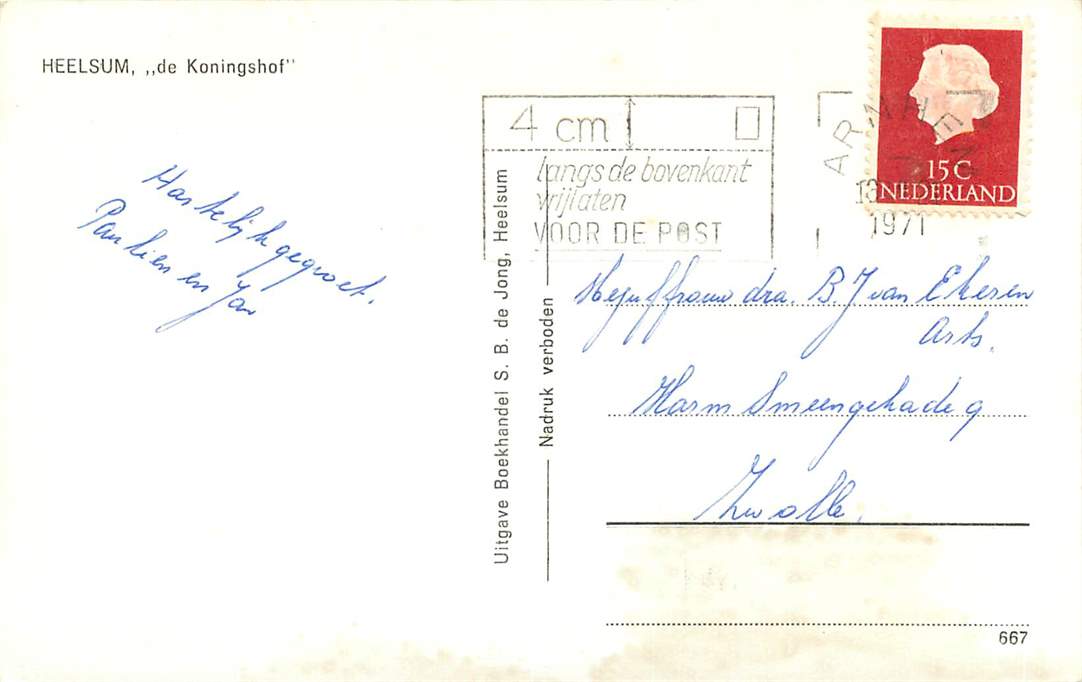 HEELSUM, ,,de Koningshof''
Hartelijk gegroet.
Paulien en Jan
Uitgave Boekhandel S. B. de Jong, Heelsum
Nadruk verboden
4 cm
langs de bovenkant
vrijlaten
VOOR DE POST
ARNHEM
1971
15 C
NEDERLAND
Mejuffrouw dra. B. J van Ekeren
Arts.
Harm Smeengekade 9
Zwolle.
667